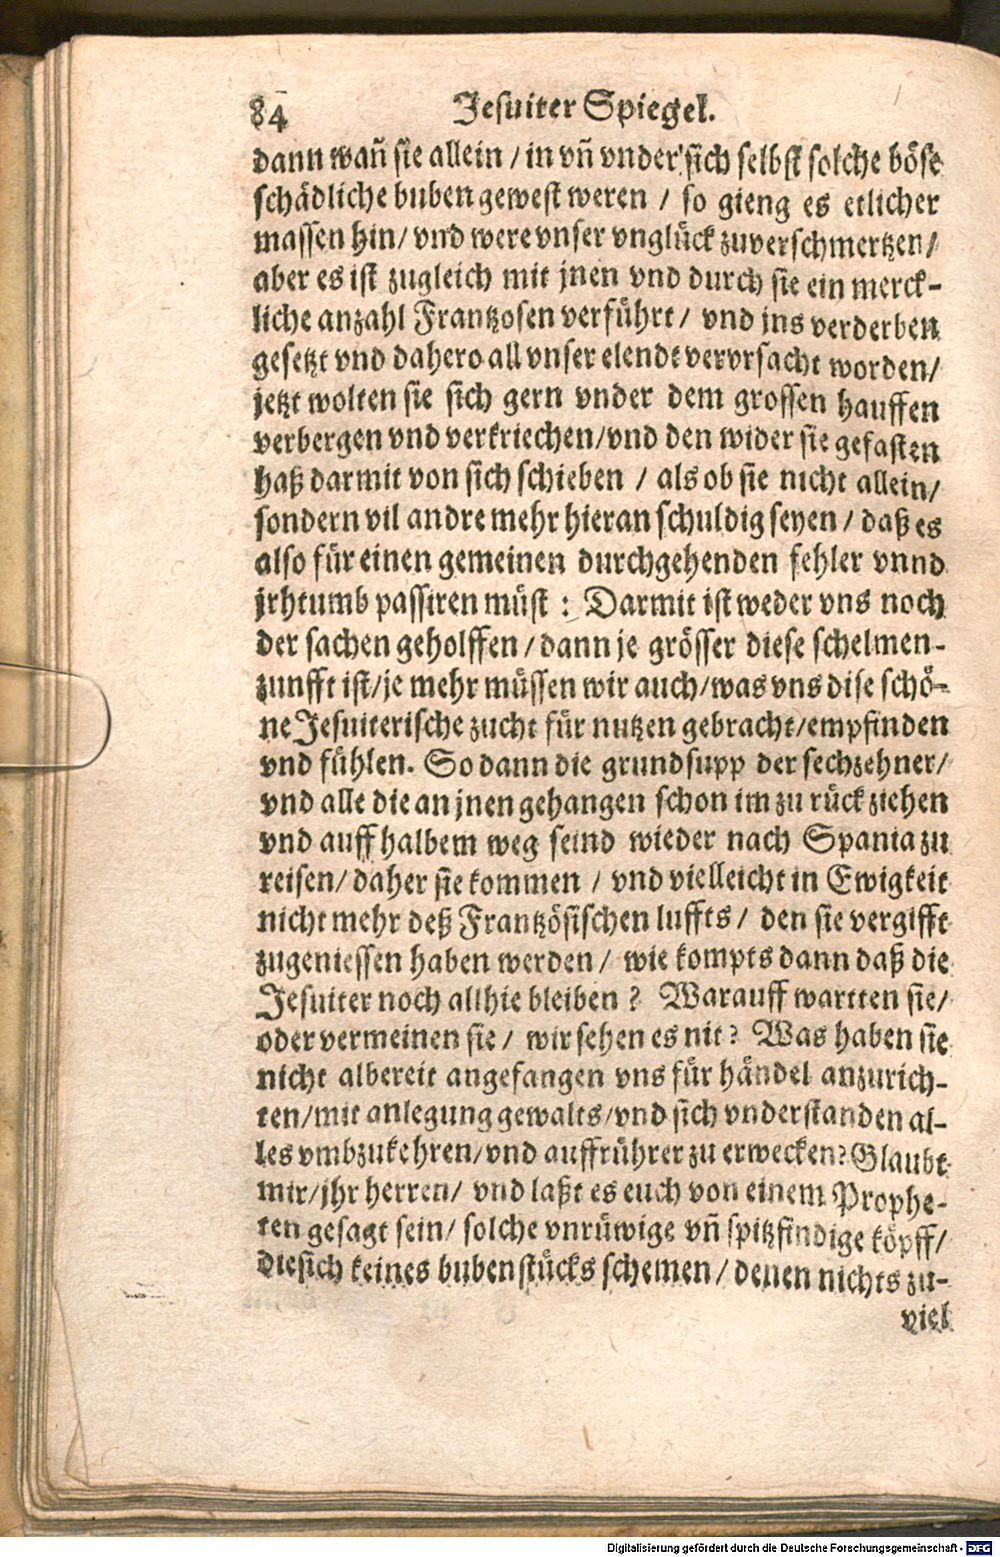 84 Jesuiter Spiegel.
dann wañ sie allein / in vñ vnder sich selbst solche böse
schädliche buben gewest weren / so gieng es etlicher
massen hin / vnd were vnser vnglück zuverschmertzen /
aber es ist zugleich mit jnen vnd durch sie ein merck-
liche anzahl Frantzosen verführt / vnd jns verderben
gesetzt vnd dahero all vnser elendt vervrsacht worden /
jetzt wolten sie sich gern vnder dem grossen hauffen
verbergen vnd verkriechen / vnd den wider sie gefasten
haß darmit von sich schieben / als ob sie nicht allein /
sondern vil andre mehr hieran schuldig seyen / daß es
also für einen gemeinen durchgehenden fehler vnnd
jrhtumb passiren müst : Darmit ist weder vns noch
der sachen geholffen / dann je grösser diese schelmen-
zunfft ist / je mehr müssen wir auch / was vns dise schö-
ne Jesuiterische zucht für nutzen gebracht / empfinden
vnd fühlen. So dann die grundsupp der sechzehner /
vnd alle die an jnen gehangen schon im zu rück ziehen
vnd auff halbem weg seind wieder nach Spania zu
reisen / daher sie kommen / vnd vielleicht in Ewigkeit
nicht mehr deß Frantzösischen luffts / den sie vergifft
zugeniessen haben werden / wie kompts dann daß die
Jesuiter noch allhie bleiben ? Warauff wartten sie /
oder vermeinen sie / wir sehen es nit ? Was haben sie
nicht albereit angefangen vns für händel anzurich-
ten / mit anlegung gewalts / vnd sich vnderstanden al-
les vmbzukehren / vnd auffrührer zu erwecken ? Glaubt
mir / jhr herren / vnd laßt es euch von einem Prophe-
ten gesagt sein / solche vnrüwige vñ spitzfindige köpff /
die sich keines bubenstücks schemen / denen nichts zu-
viel
Digitalisierung gefördert durch die Deutsche Forschungsgemeinschaft - DFG